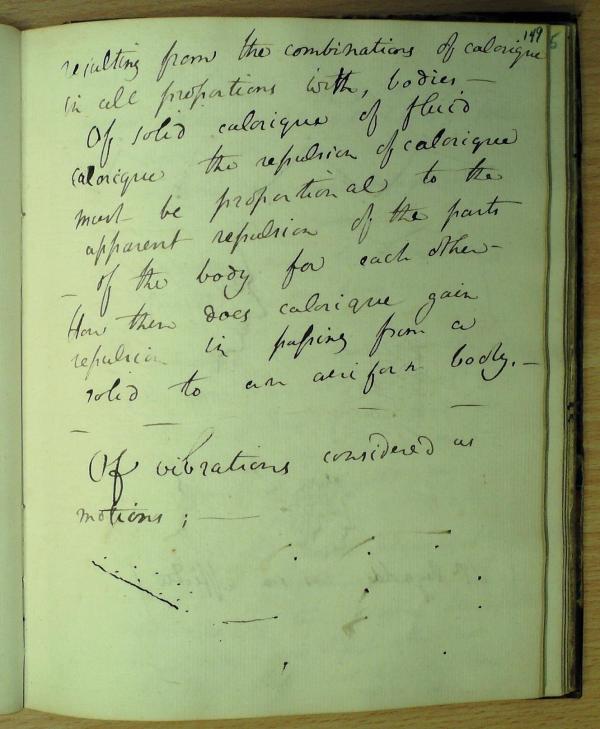 149 5
resulting from the combinations of calorique
in all proportions with, bodies —
Of solid calorique of fluid
calorique the repulsion of calorique
must be proportional to the
apparent repulsion of the parts
— of the body for each other —
How then does calorique gain
repulsion in passing from a
solid to an aeriform body. —
Of vibrations considered as
motions; —